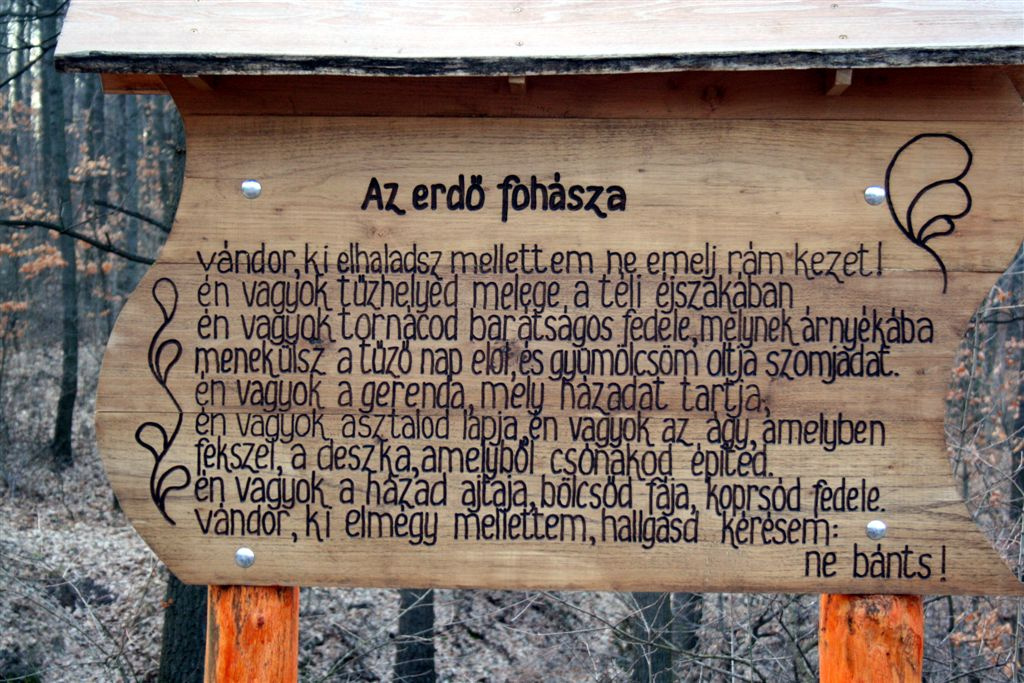 Az erdő fohásza
vándor, ki elhaladsz mellettem ne emelj rám kezet!
én vagyok tűzhelyed melege a téli éjszakában
én vagyok tornácod barátságos fedele, melynek árnyékába
menekülsz a tűző nap elől, és gyümölcsöm oltja szomjadat.
én vagyok a gerenda, mely házadat tartja,
én vagyok asztalod lapja, én vagyok az ágy, amelyben
fekszel, a deszka, amelyből csónakod építed.
én vagyok a házad ajtaja, bölcsőd fája, koprsód fedele.
vándor, ki elmégy mellettem, hallgasd kérésem:
ne bánts!